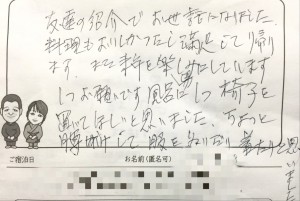 友達の紹介でお世話になりました
料理もおいしかったし満足して帰り
ます。また来年を楽しみにしています
1つお願いです 風呂に1つ椅子を
置いてほしいと思いました ちょっと
腰掛けて服を
と思いました
ご宿泊日 お名前(匿名可)